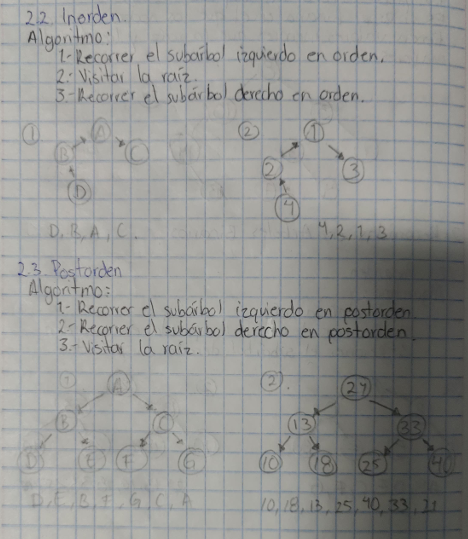 2.2. Inorden.
Algoritmo:
1.- Recorrer el subárbol izquierdo en orden.
2.- Visitar la raíz.
3.- Recorrer el subárbol derecho en orden.
① A ② 1
B C 2 3
D 4
D, B, A, C. 4, 2, 1, 3
2.3. Postorden
Algoritmo:
1.- Recorrer el subárbol izquierdo en postorden
2.- Recorrer el subárbol derecho en postorden.
3.- Visitar la raíz.
① A ②.
B C 13 33
D E F G 10 18 25 40
D, E, B, F, G, C, A 10, 18, 13, 25, 40, 33,